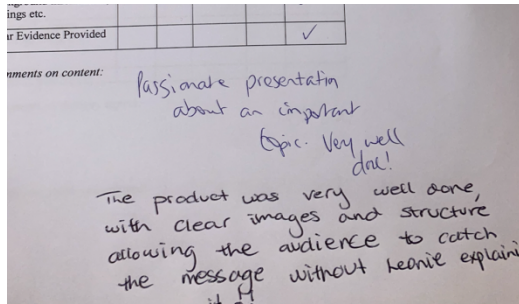 ings etc.
r Evidence Provided ✓
mments on content:
Passionate presentation
about an important
topic. Very well
done!
The product was very well done,
with clear images and structure
allowing the audience to catch
the message without Leonie explaini
it!